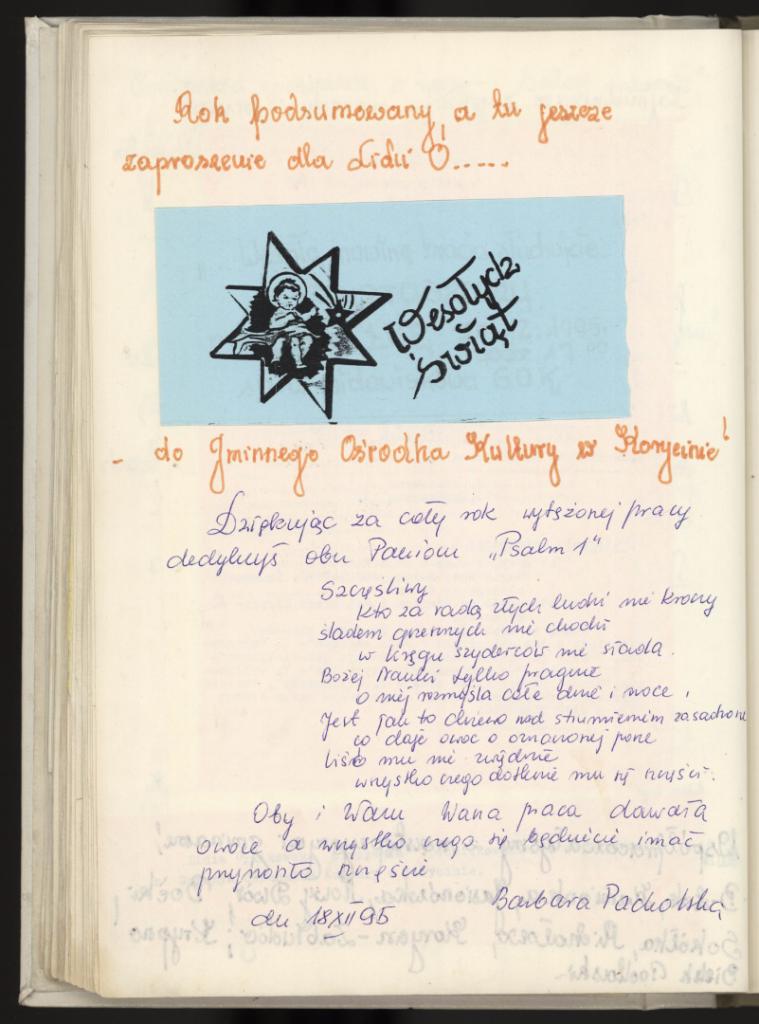 Rok podsumowany, a tu jeszcze
zaproszenie dla Lidii Ó.....
Wesołych
Świąt
- do Gminnego Ośrodka Kultury w Korycinie!
Dziękując za cały rok wytężonej pracy
dedykuję obu Paniom „Psalm 1"
Szczęśliwy
Kto za radą złych ludzi nie kroczy
śladem grzesznych nie chodzi
w kręgu szyderców nie siada.
Bożej Nauki tylko pragnie
o niej rozmyśla całe dnie i noce,
Jest jak to drzewo nad strumieniem zasadzone
co daje owoc o oznaczonej porze
liście mu nie zwiędnie
wszystko czego dotknie mu się szczęści.
Oby i Wam Wasza praca dawała
owoce a wszystko czego się będziecie imać
przynosiło szczęście
Barbara Pacholska
dn 18XII95